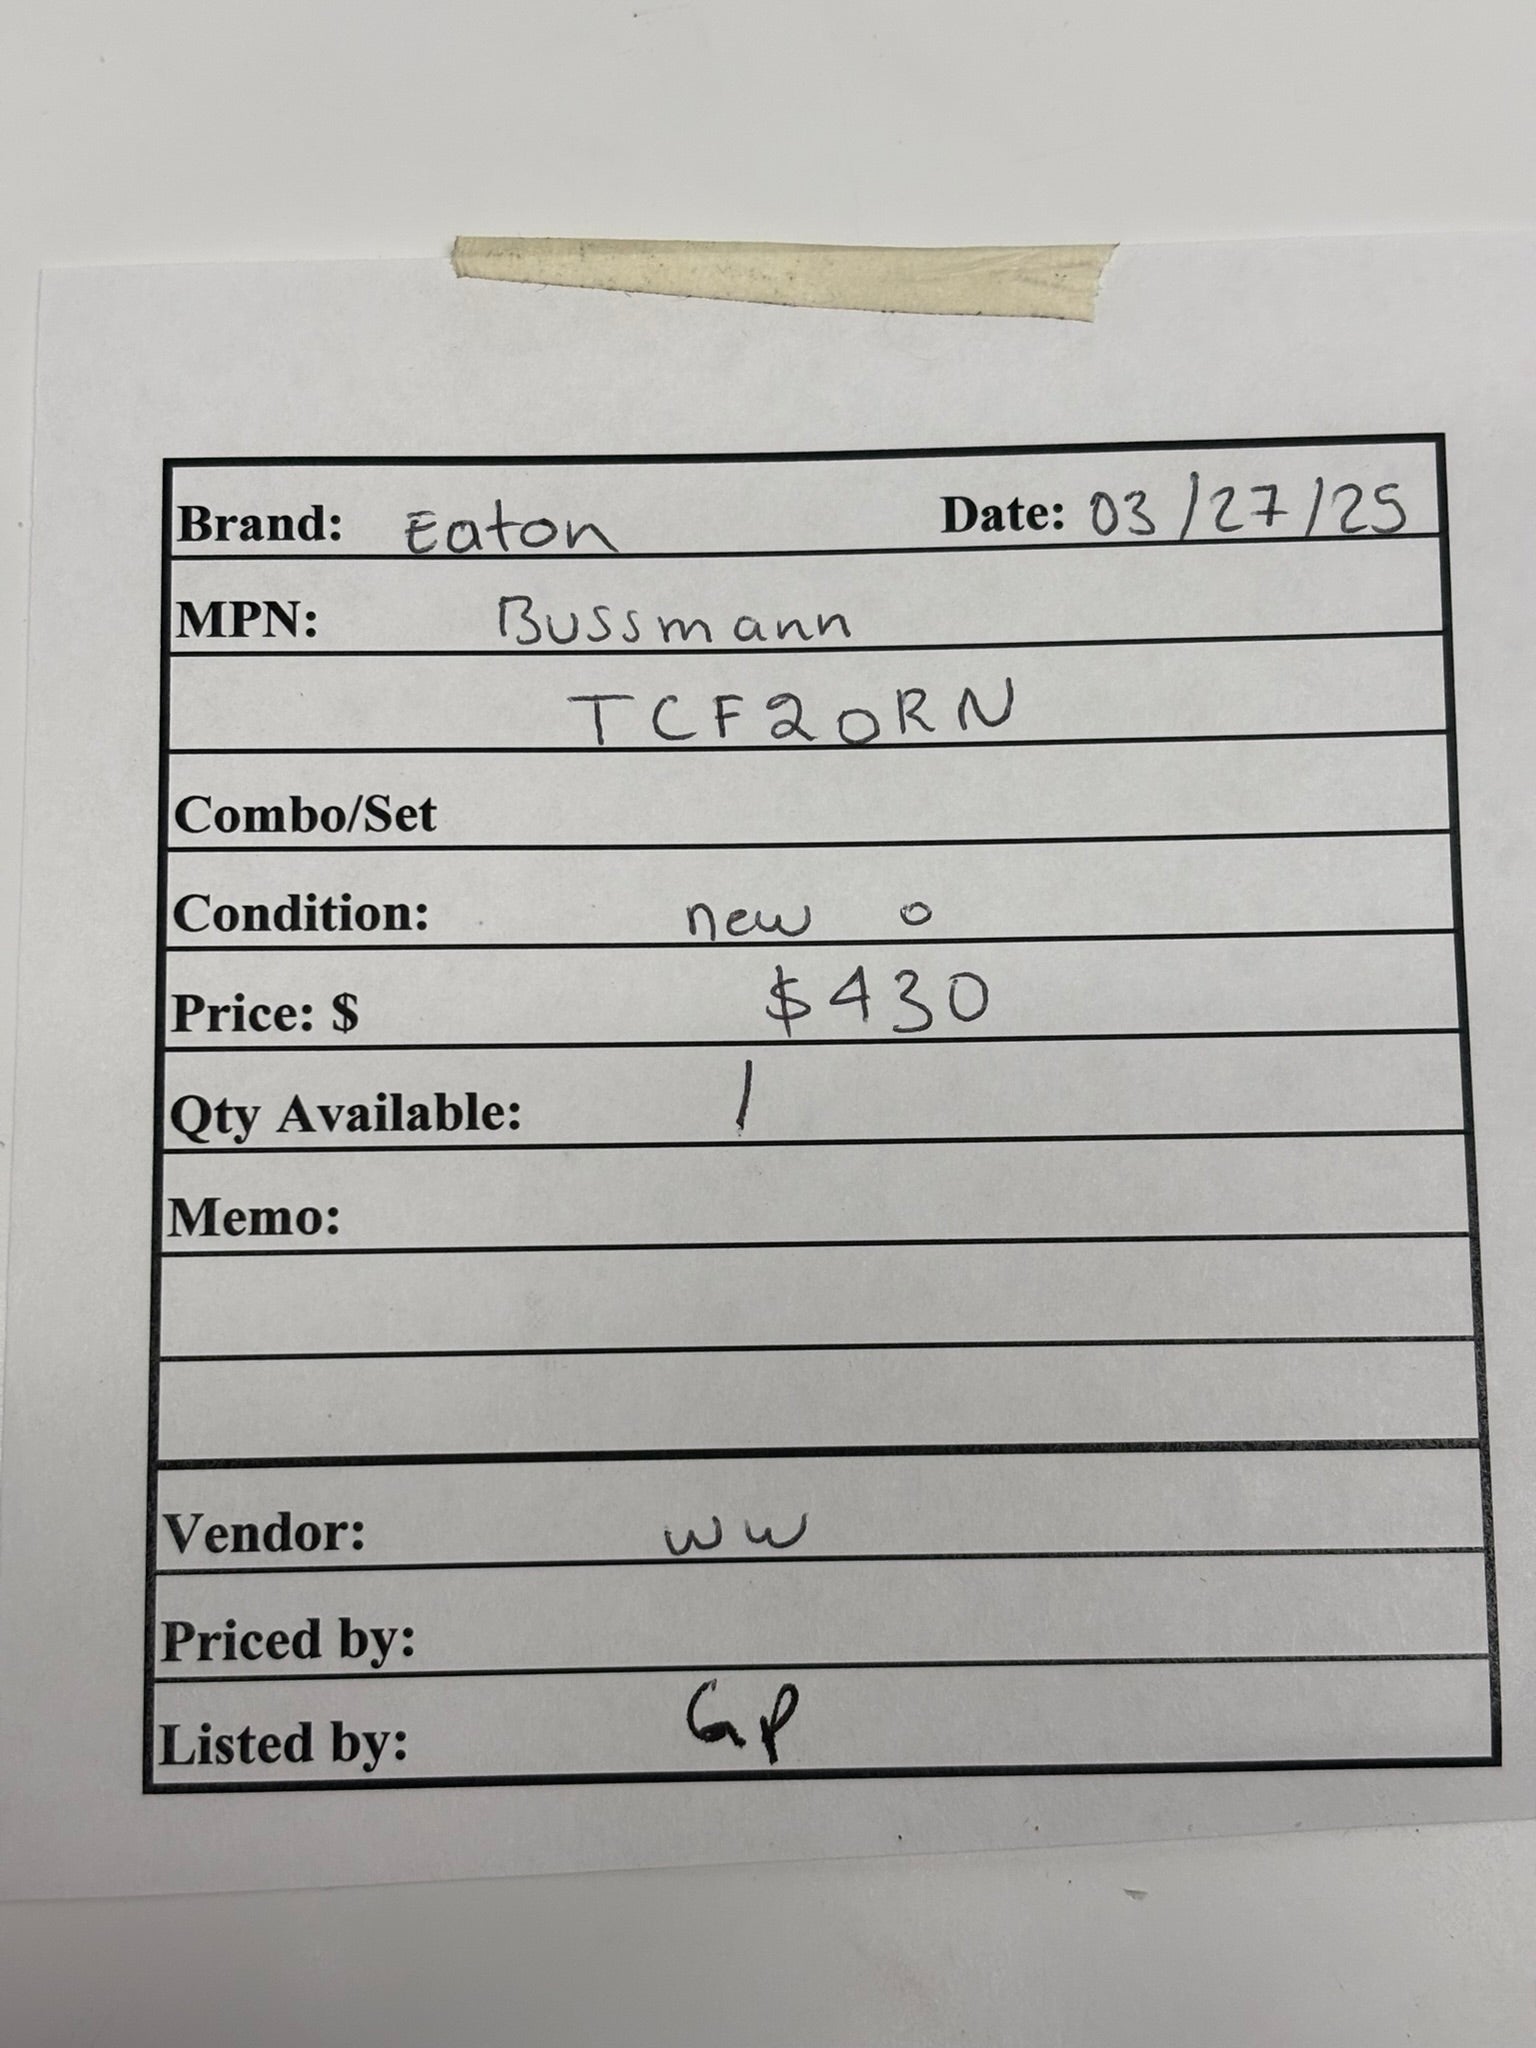 Brand: Eaton Date: 03/27/25
MPN: Bussmann
TCF20RN
Combo/Set
Condition: new o
Price: $ $430
Qty Available: 1
Memo:
Vendor: ww
Priced by:
Listed by: GP